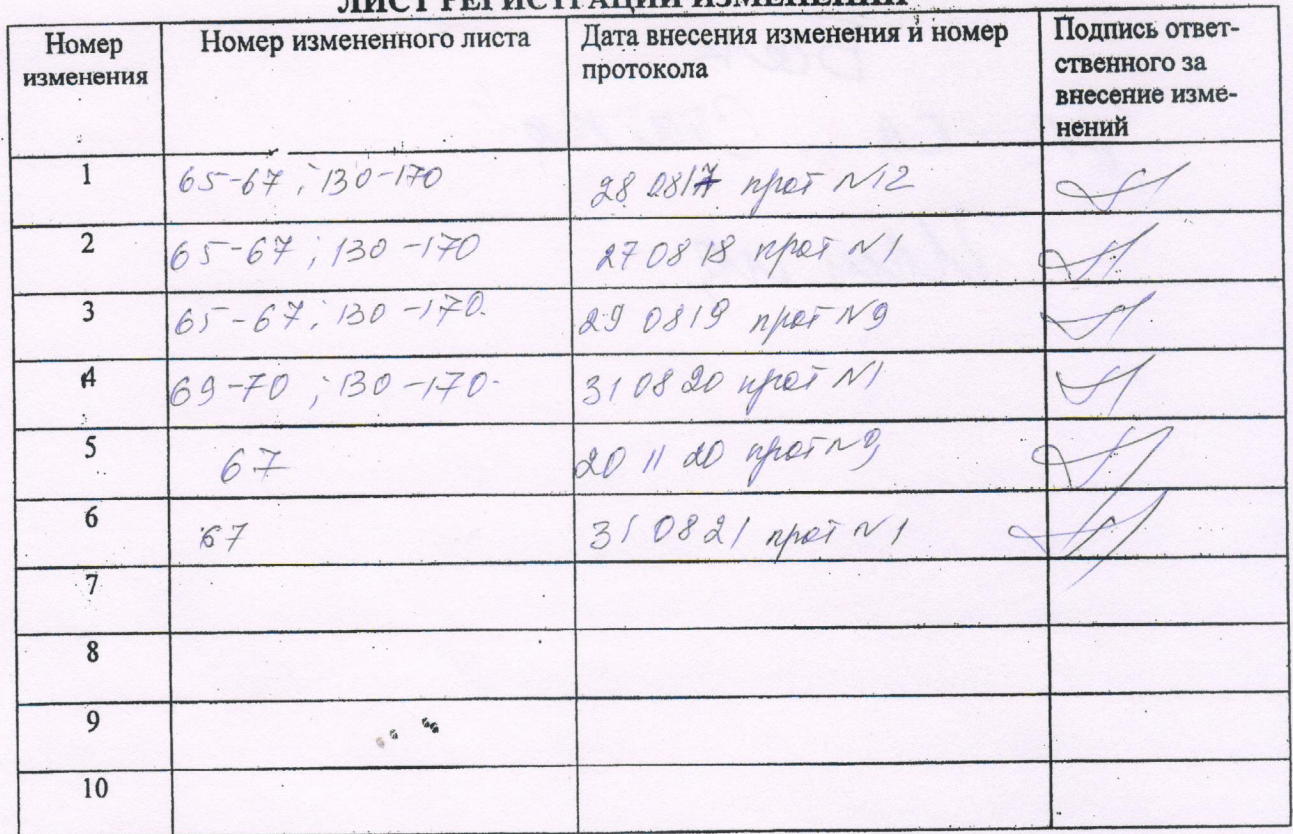 ЛИСТ РЕГИСТРАЦИИ ИЗМЕНЕНИЙ
Номер изменения Номер измененного листа Дата внесения изменения и номер протокола Подпись ответ-ственного за внесение изме-нений
1 65-67; 130-170 28 0817 прот №12
2 65-67; 130-170 27 08 18 прот №1
3 65-67; 130-170. 29 0819 прот №9
4 69-70; 130-170. 31 08 20 прот №1
5 67 20 11 20 прот №9
6 67 31 08 21 прот №1
7
8
9
10